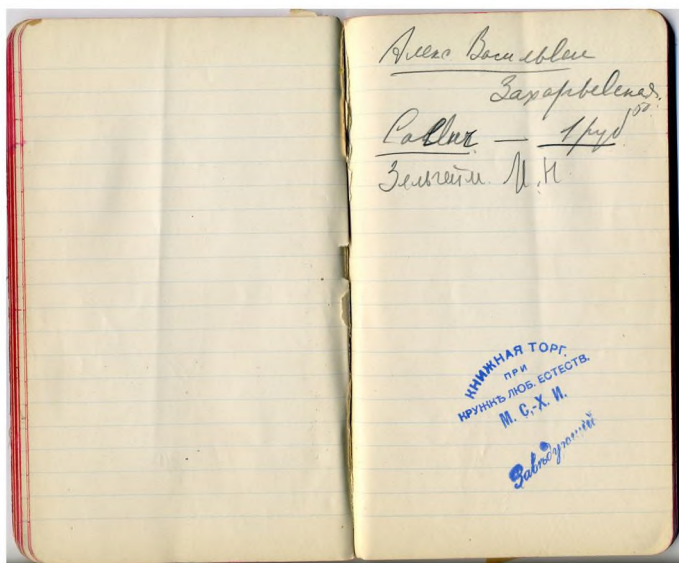 Алекс Васильвен
Захарьевская
– 1 руб 50
Зельгейм И.Н
КНИЖНАЯ ТОРГ.
ПРИ
КРУЖКѢ ЛЮБ. ЕСТЕСТВ.
М. С.-Х. И.
Завѣдующій